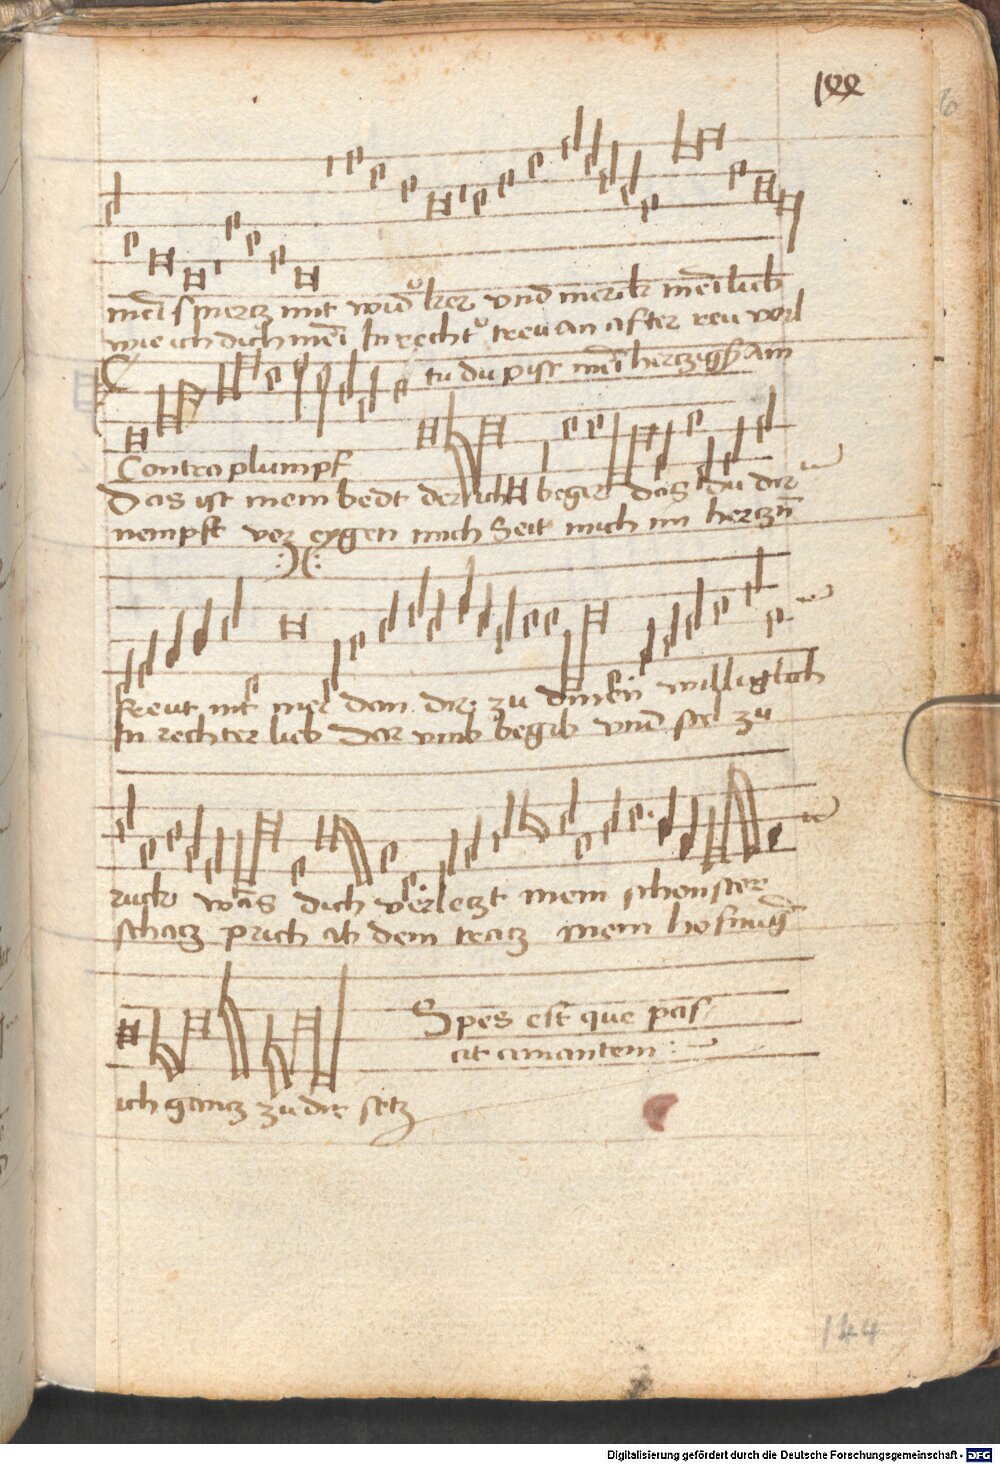 144
mei smertz mit wider ker vnd merck mei lieb
wie ich dich mei In recht treu an after reu vorl
tu du pist mei hertzigs Am
Contra plumpf
Das ist mein bedt der ich beger das du dir
nempst vor eygen mich Seit mich im hertzn
freut nit mer dan dir zu dinen williglich
In rechter lieb Dar vmb begib vnd stel zu
ruck was dich verletzt mein schonster
schatz prich ab dem tratz mein hofnung
Spes est que pas
cit amantem
ich gantz zu dir setz
144
Digitalisierung gefördert durch die Deutsche Forschungsgemeinschaft - DFG